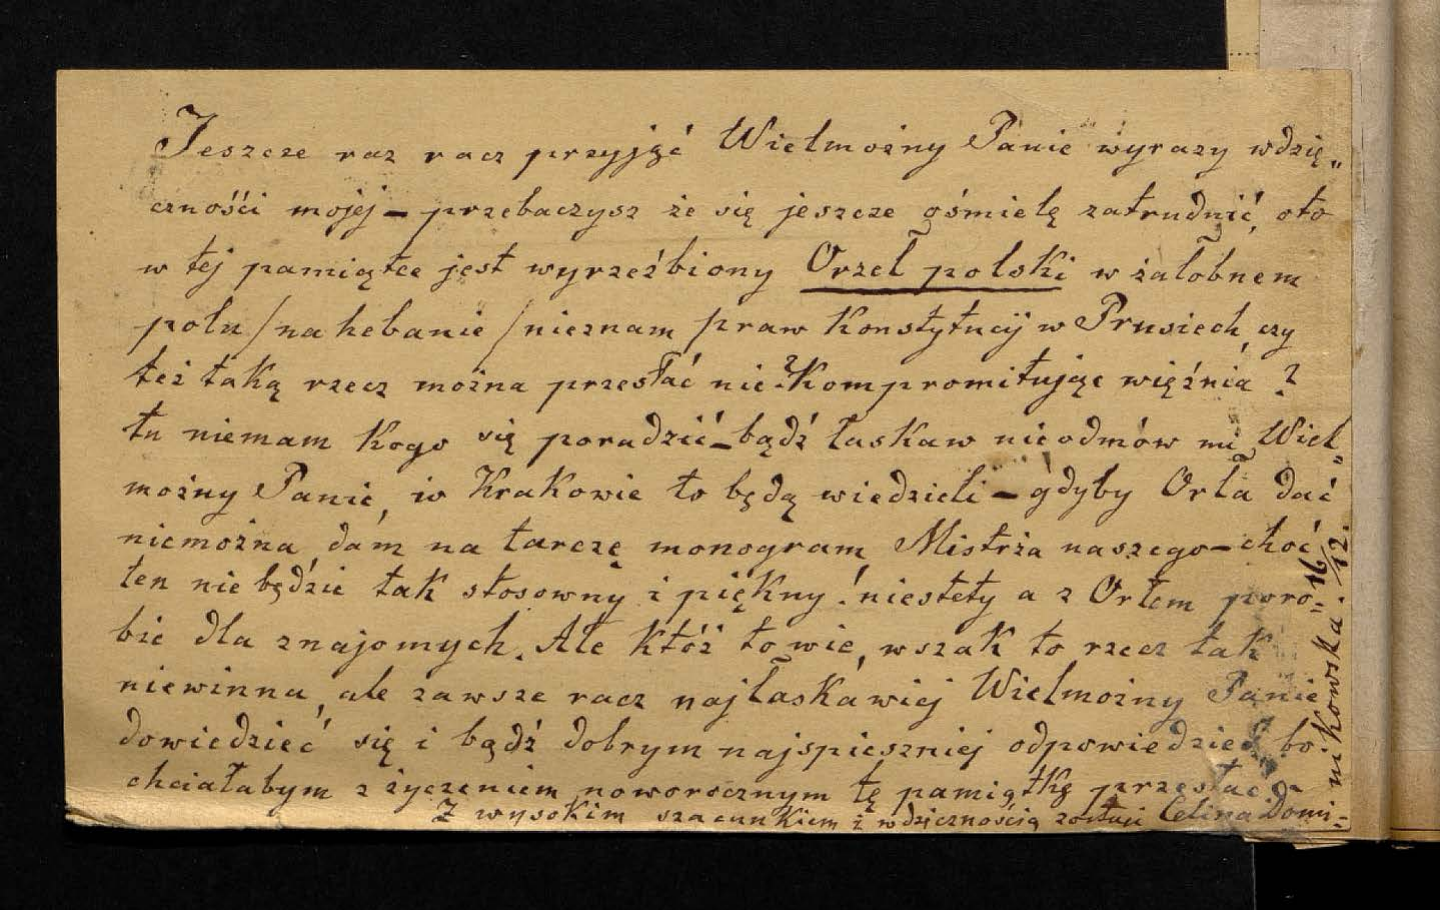 Jeszcze raz racz przyjąć Wielmożny Panie wyrazy wdzię„
czności mojej – przebaczysz że się jeszcze ośmielę zatrudnić, oto
w tej pamiątce jest wyrzeźbiony Orzeł polski w żałobnem
polu /na hebanie/ nieznam praw Konstytucij w Prusiech, czy
też taką rzecz można przesłać nie Kompromitując więźnia?
tu niemam Kogo się poradzić – bądź łaskaw nieodmów mi Wiel„
możny Panie, iw Krakowie to będą wiedzieli – gdyby Orła dać
niemożna, dam na tarczę monogram, Mistrza naszego – choć
ten nie będzie tak stosowny i piękny! niestety a z Orłem poro=
bię dla znajomych. Ale któż to wie, wszak to rzecz tak
niewinna, ale zawsze racz najłaskawiej Wielmożny Panie
dowiedzieć się i bądź dobrym najspieszniej odpowiedzieć bo
chciałabym z życzeniem noworocznym tę pamiątkę przesłać.
Z wysokim szacunkiem i wdzięcznością zostaję Celina Domi=
nikowska. 16/12.